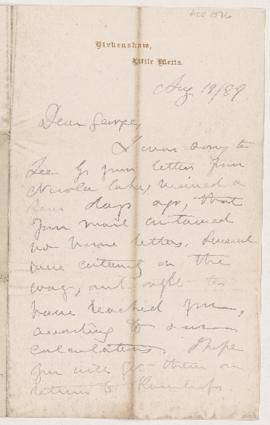 Birkenshaw,
Little Metis.
Aug 19/89
Dear George,
I was sorry to
see by your letter from
Nicola Lake, received a
few days ago, that
your mail contained
no home letters, several
were certainly on the
way, and ought to
have reached you,
according to
calculations. I hope
you will get them on
return to Kamloops.